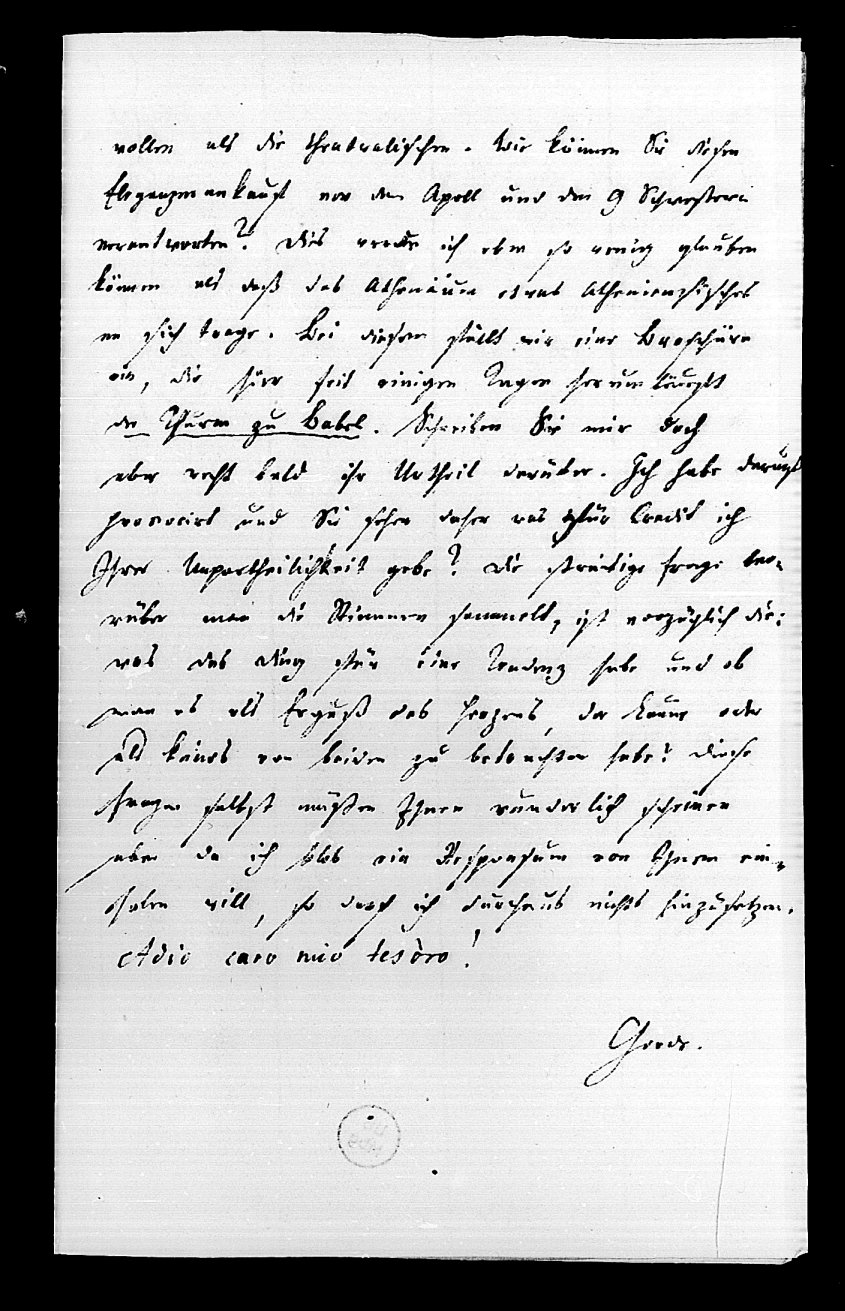 vollen als die theatralischen. Wie können Sie diesen
Eleganzmankauf vor dem Apoll und den 9 Schwestern
verantworten? Dies werde ich eben so wenig glauben
können als daß das Athenäum etwas Atheniensisches
an sich trage. Bei diesem fällt mir eine Broschüre
ein, die hier seit einigen Tagen herumläuft
der Thurm zu Babel. Schreiben Sie mir doch
aber recht bald ihr Urtheil darüber. Ich habe darauf
provocirt und Sie sehen daher was für Credit ich
Ihrer Unpartheilichkeit gebe? Die streitige Frage wo-
rüber man die Stimmen sammelt, ist vorzüglich die:
was das Ding für eine Tendenz habe und ob
man es als Erguß des Herzens, der Laune oder
als keines von beiden zu betrachten habe? Diese
Fragen selbst müßen Ihnen wunderlich scheinen
aber da ich blos ein Responsum von Ihnen ein-
holen will, so darf ich durchaus nichts hinzusetzen.
Adio caro mio tesoro!